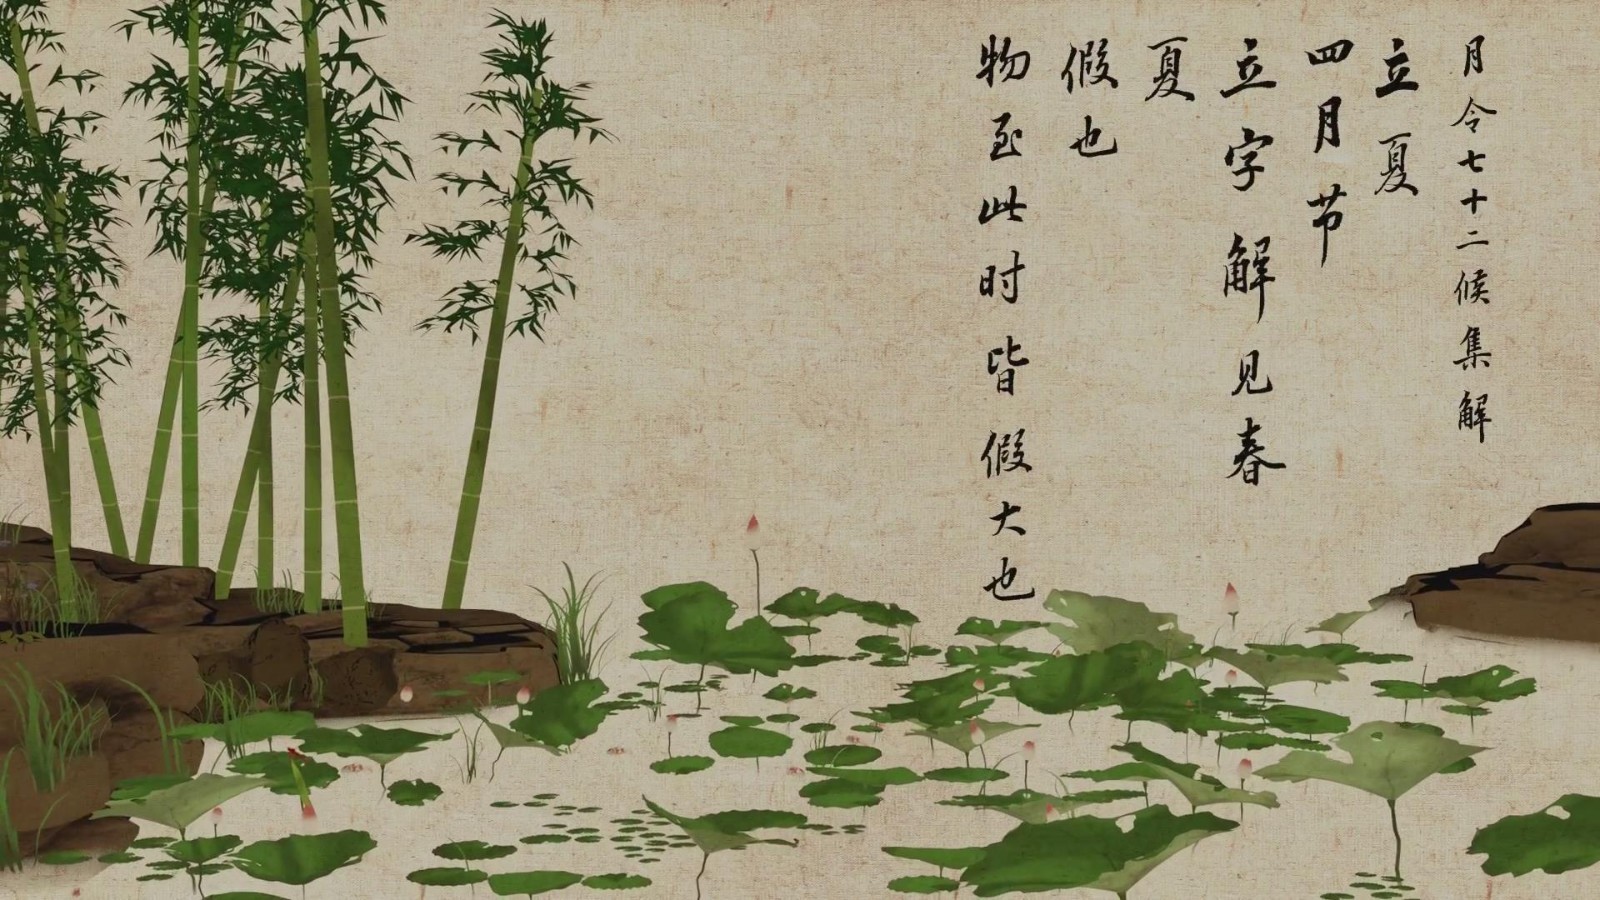 月令七十二候集解
立夏
四月节
立字解见春
夏
假也
物至此时皆假大也